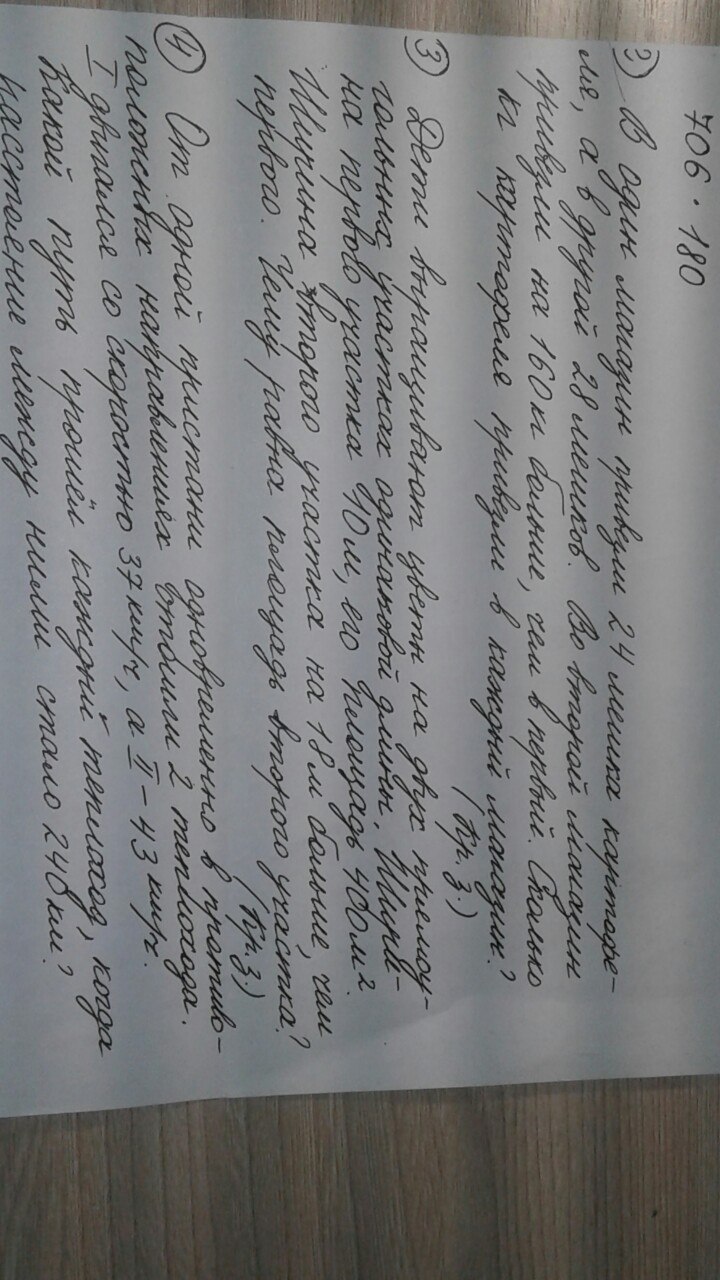 706 · 180
2) В один магазин привезли 24 мешка картофе-
ля, а в другой 28 мешков. Во второй магазин
привезли на 160 кг больше, чем в первый. Сколько
кг картофеля привезли в каждый магазин?
(Кр. з.)
3) Дети выращивают цветы на двух прямоу-
гольных участках одинаковой длины. Шири-
на первого участка 40 м, его площадь 480 м².
Ширина второго участка на 18 м больше, чем
первого. Чему равна площадь второго участка?
(Кр. з.)
4) От одной пристани одновременно в противо-
положных направлениях отбыли 2 теплохода.
I двигался со скоростью 37 км/ч, а II – 43 км/ч.
Какой путь прошёл каждый теплоход, когда
расстояние между ними стало 240 км?